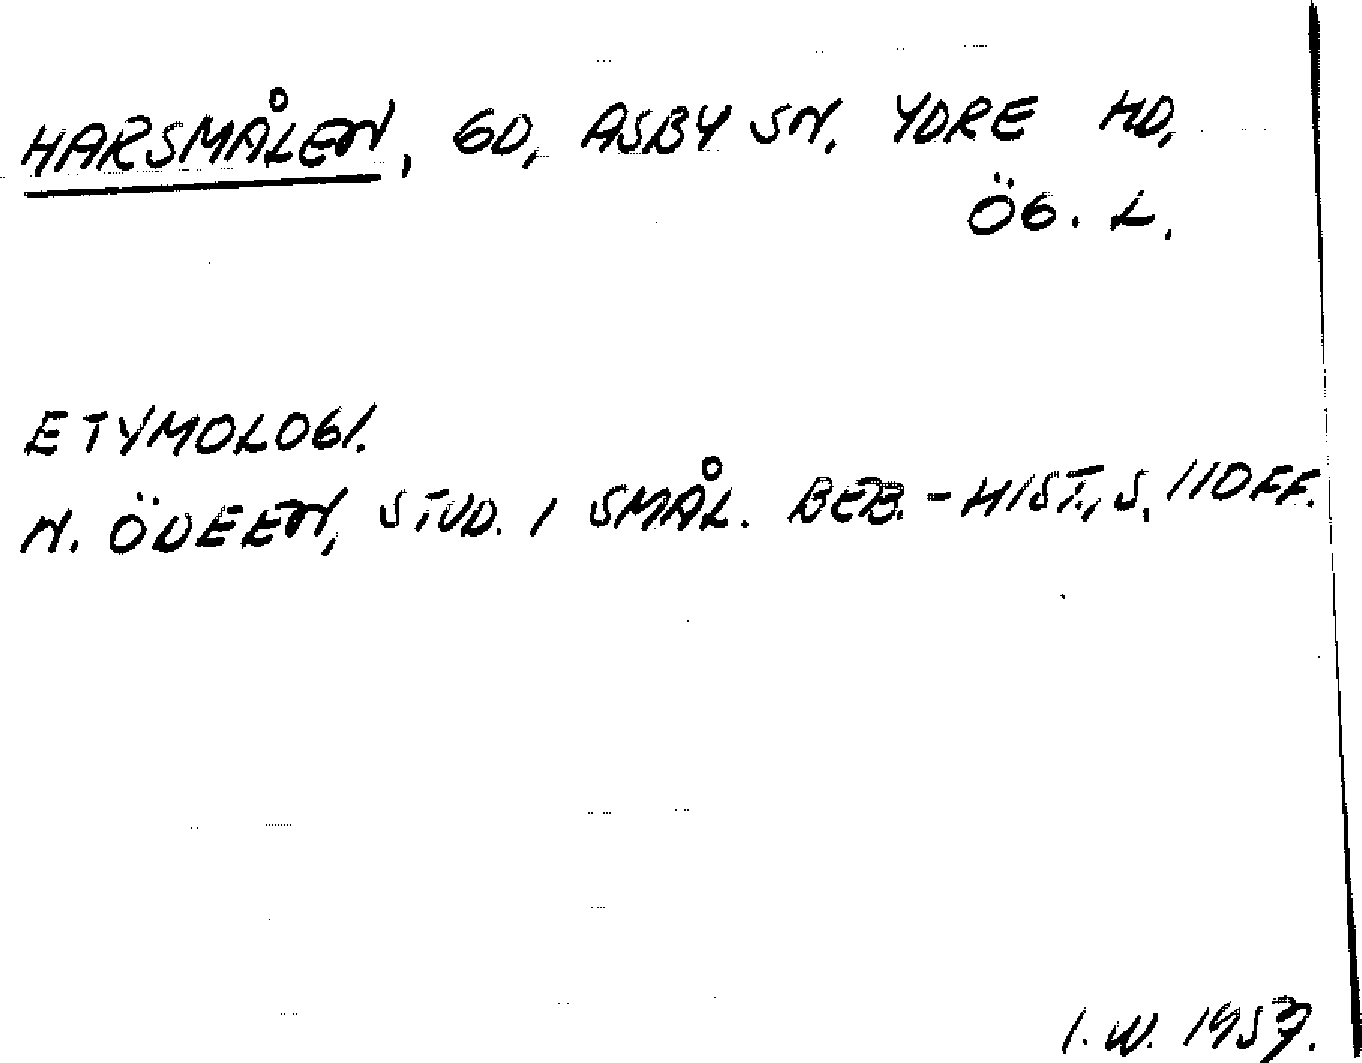 HARSMÅLEN, GD, ASBY SN. YDRE HD,
ÖG. L.
ETYMOLOGI.
N. ÖDEEN, STUD. I SMÅL. BEB.-HIST., S. 110 FF.
I. W.